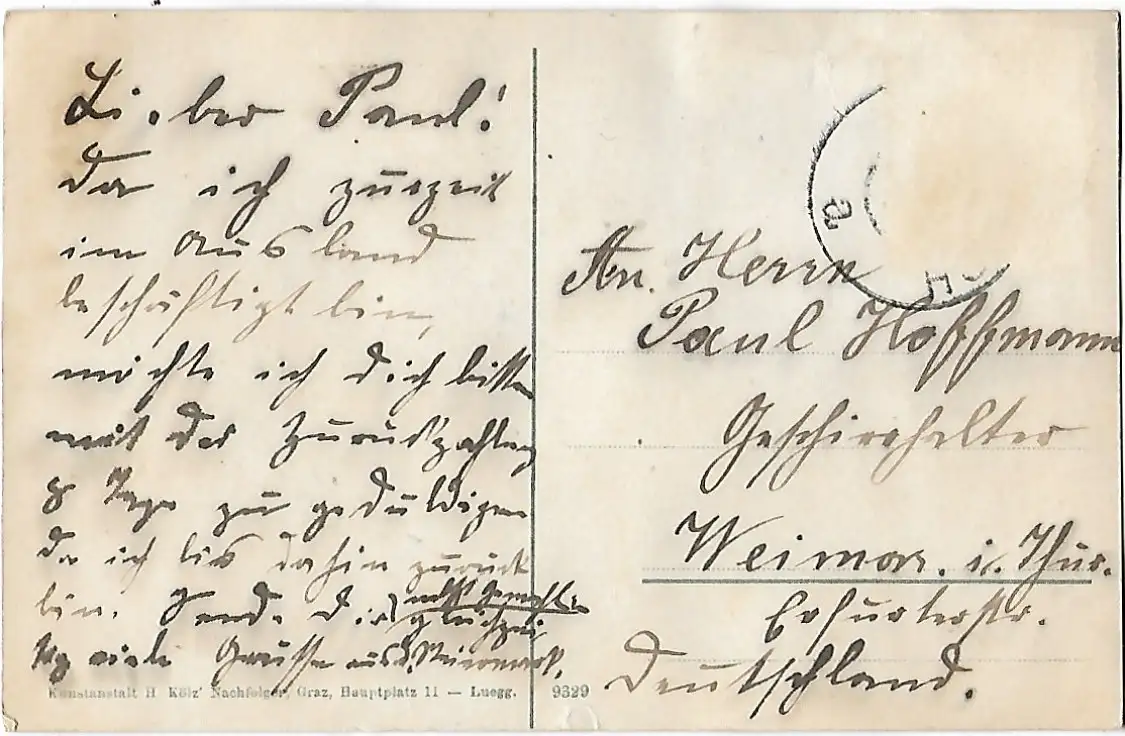 Lieber Paul!
Da ich zurzeit
im Ausland
beschäftigt bin,
möchte ich dich bitten
mit der Zurückzahlung
8 Tage zu gedulden
da ich bis dahin zurück
bin. Sende Dir
nebst Gemahlin
gleichzei
tig viele Grüsse aus d. Steiermark.
Kunstanstalt H Kölz' Nachfolger, Graz, Hauptplatz 11 — Luegg.
9329
a
An. Herrn
Paul Hoffmann
Geschirrhalter
Weimar. i. Thür.
Erfurterstr.
Deutschland.